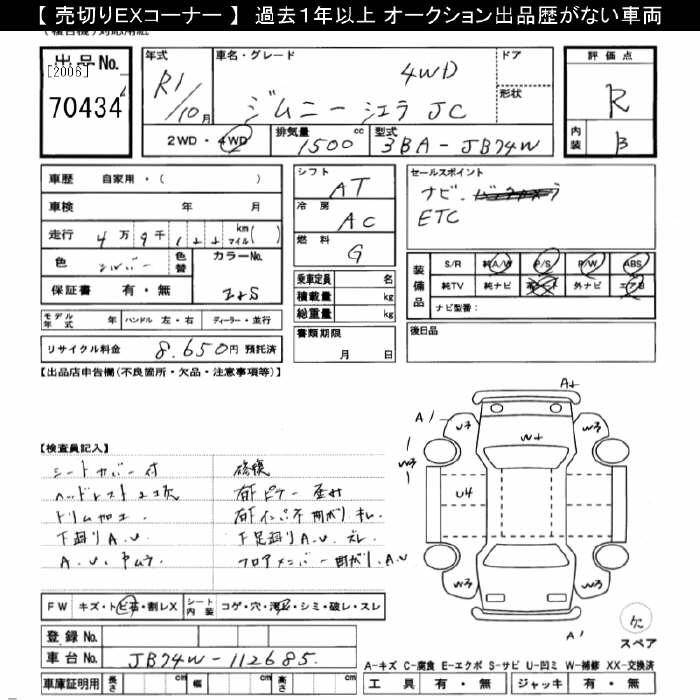 【 売切りEXコーナー 】 過去１年以上 オークション出品歴がない車両
出 品 No.
[2006]
70434
年式 R1/10月
車名・グレード ジムニーシエラ JC 4WD
ドア
形状
2WD・4WD
排気量 1500 cc
型式 3BA-JB74W
評 価 点
R
内装 B
車歴 自家用・( )
車検 年 月
走行 4万9千1 km マイル( )
色 シルバー 色替 カラーNo. Z2S
保証書 有・無
モデル年式 年 ハンドル 左・右 ディーラー・並行
リサイクル料金 8.650円 預託済
シフト AT
冷房 AC
燃料 G
乗車定員 名
積載量 kg
総重量 kg
書類期限
月 日
セールスポイント
ナビ.
ETC
装備品 S/R 純A/W P/S P/W ABS
純TV 純ナビ 外ナビ エアB
ナビ型番：
後日品
【出品店申告欄(不良箇所・欠品・注意事項等)】
【検査員記入】
シートカバー付
ドリム加工
下廻りA.U.
修復
下足廻りA.U. ズレ
フロアメンバー曲がり.A.U
A+
A1
Wろ
Uろ
W+
Wろ
Wろ
U4
Wろ
Wろ
A1
欠
スペア
FW キズ・トビ石・割レX
シート内装 コゲ・穴・汚レ・シミ・破レ・スレ
登録 No.
車台 No. JB74W-112685.
車庫証明用 長さ cm 幅 cm 高さ cm
A-キズ C-腐食 E-エクボ S-サビ U-凹ミ W-補修 XX-交換済
工具 有・無 ジャッキ 有・無